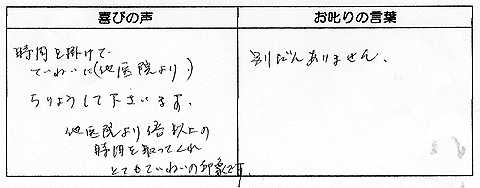 喜びの声
お叱りの言葉
時間を掛けて
ていねいに(他医院より)
ちりょうして下さいます。
他医院より倍以上の
時間を取ってくれ
とてもていねいの印象です
別だんありません。